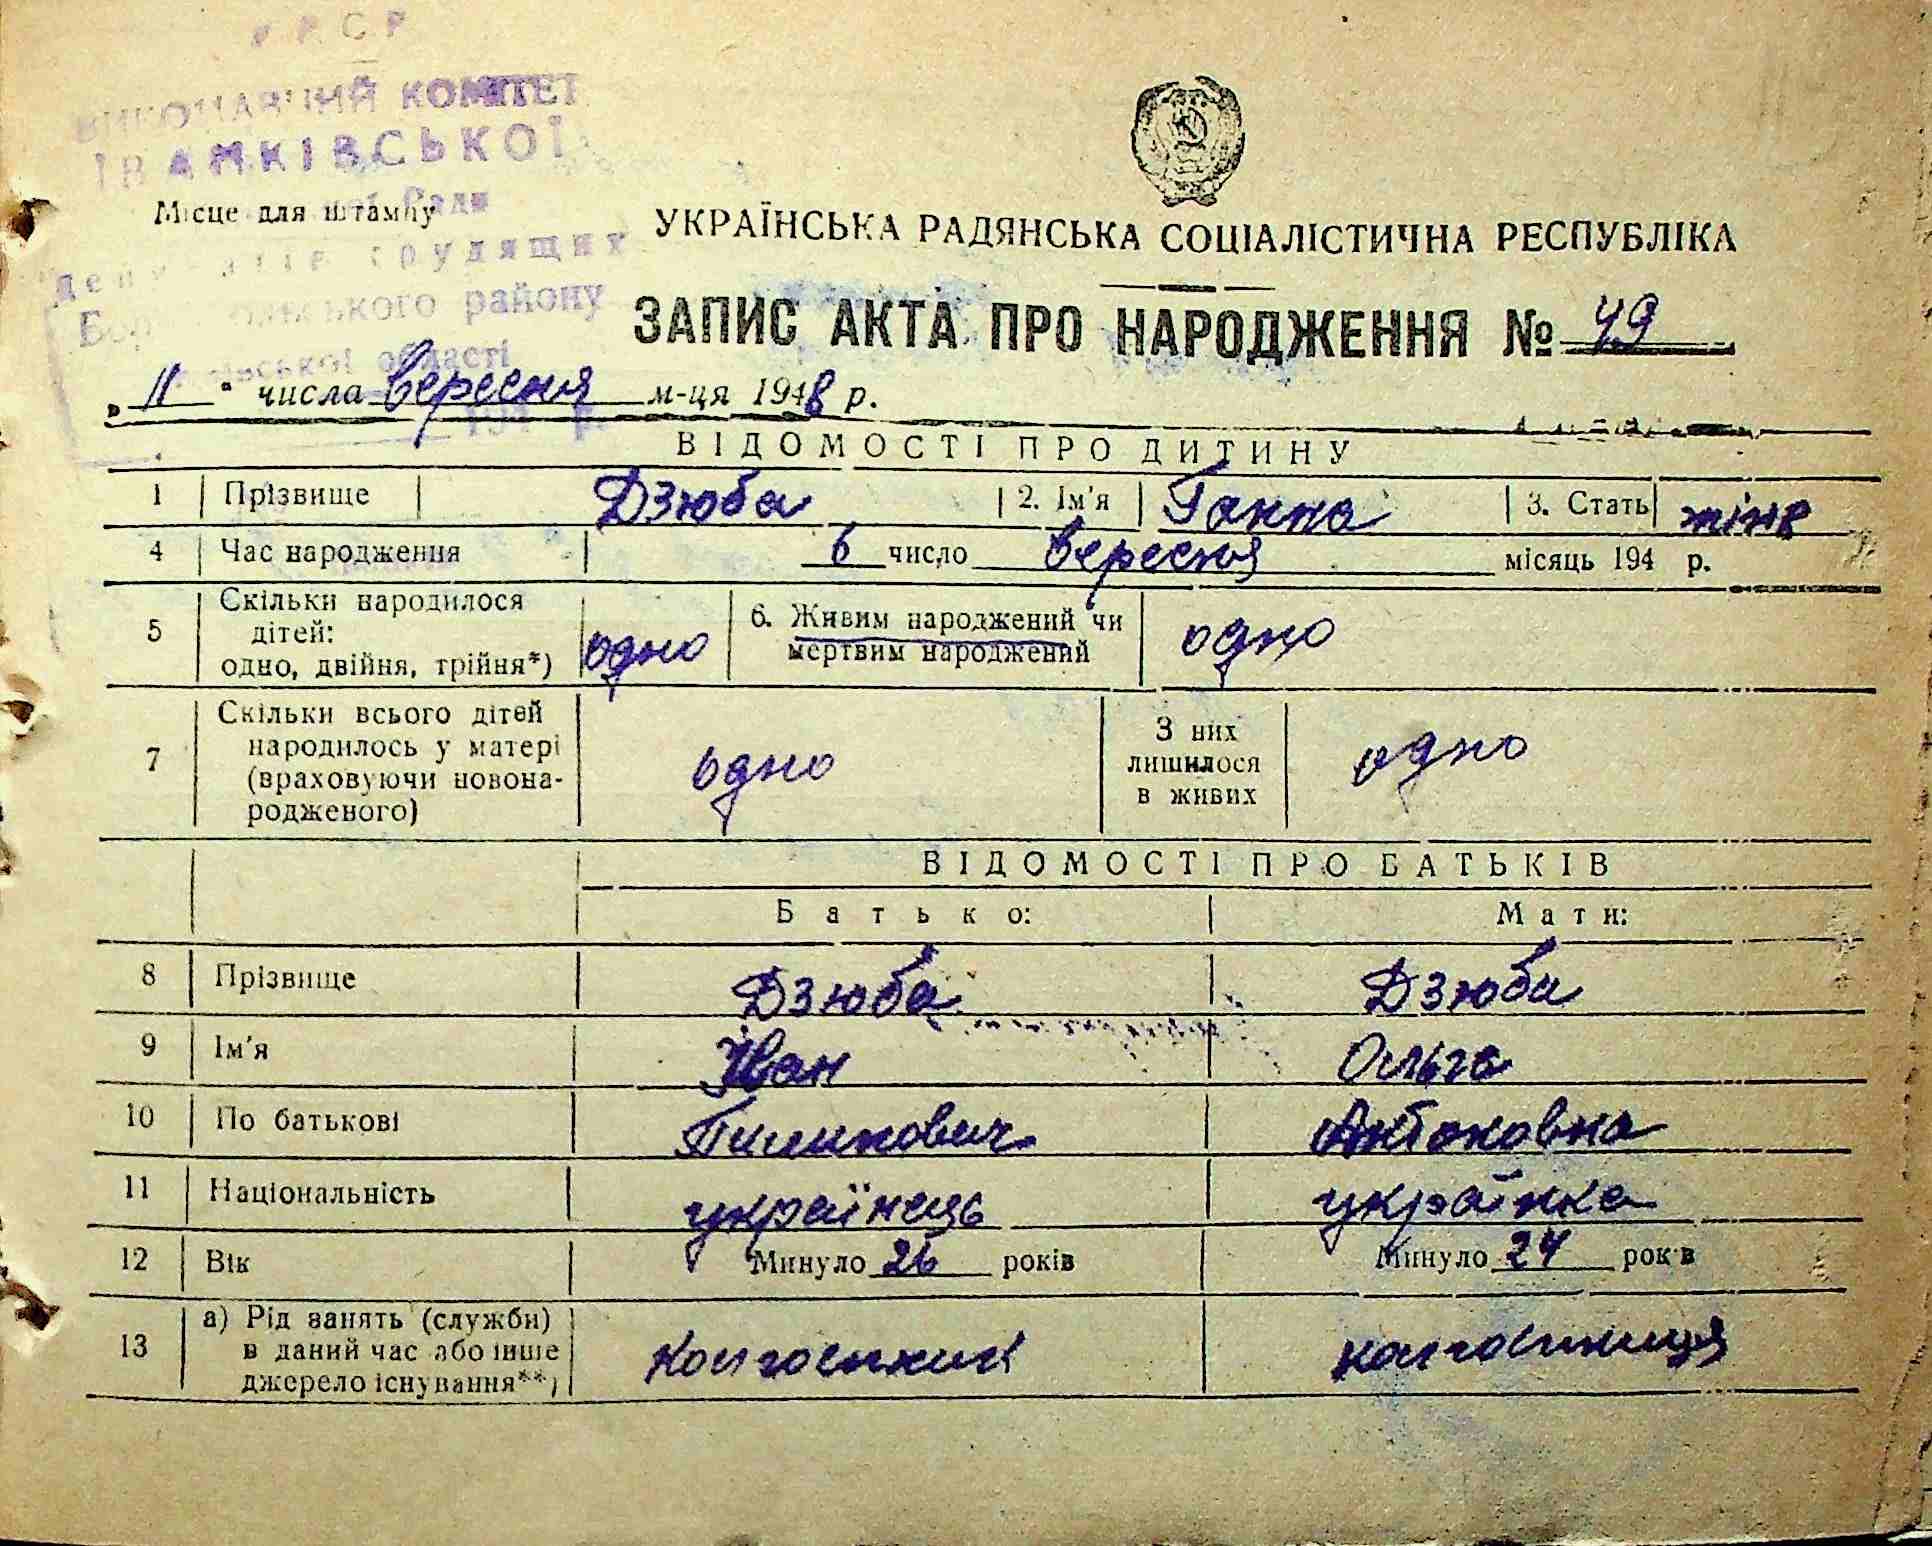 УРСР
ВИКОНАВЧИЙ КОМІТЕТ
ІВАНКІВСЬКОЇ
Ради
Місце для штампу
депутатів трудящих
Бориспільського району
області
УКРАЇНСЬКА РАДЯНСЬКА СОЦІАЛІСТИЧНА РЕСПУБЛІКА
ЗАПИС АКТА ПРО НАРОДЖЕННЯ № 49
„ 11 " числа вересня м-ця 1948 р.
ВІДОМОСТІ ПРО ДИТИНУ
1 Прізвище Дзюба 2. Ім'я Ганна 3. Стать жінв
4 Час народження 6 число вересня місяць 194 р.
5 Скільки народилося дітей: одно, двійня, трійня*) одно 6. Живим народжений чи мертвим народжений одно
7 Скільки всього дітей народилось у матері (враховуючи новонародженого) одно З них лишилося в живих одно
ВІДОМОСТІ ПРО БАТЬКІВ
Батько: Мати:
8 Прізвище Дзюба Дзюба
9 Ім'я Іван Ольга
10 По батькові Пилипович Антоновна
11 Національність українець українка
12 Вік Минуло 26 років Минуло 24 років
13 а) Рід занять (служби) в даний час або інше джерело існування**) колгоспник колгоспниця